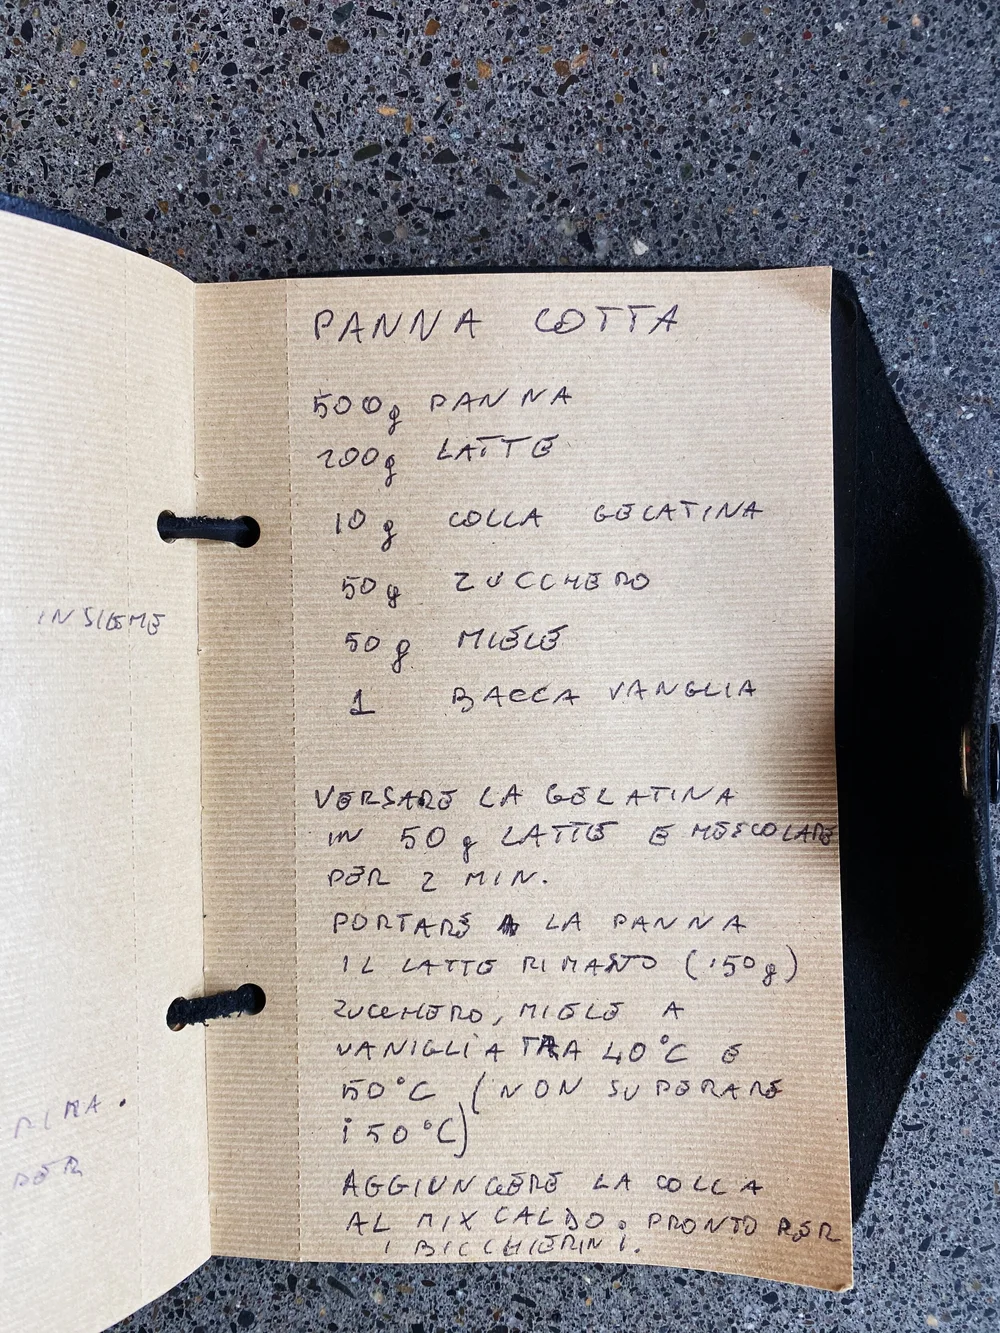 INSIEME
RIMA.
PER
PANNA COTTA
500g PANNA
200g LATTE
10 g COLLA GELATINA
50g ZUCCHERO
50 g MIELE
1 BACCA VANGLIA
VERSARE LA GELATINA
IN 50 g LATTE E MESCOLARE
PER 2 MIN.
PORTARE LA PANNA
IL LATTE RIMASTO (150g)
ZUCCHERO, MIELE A
VANIGLIA TRA 40°C E
50°C (NON SUPERARE
i 50°C)
AGGIUNGERE LA COLLA
AL MIX CALDO. PRONTO PER
I BICCHIERINI.